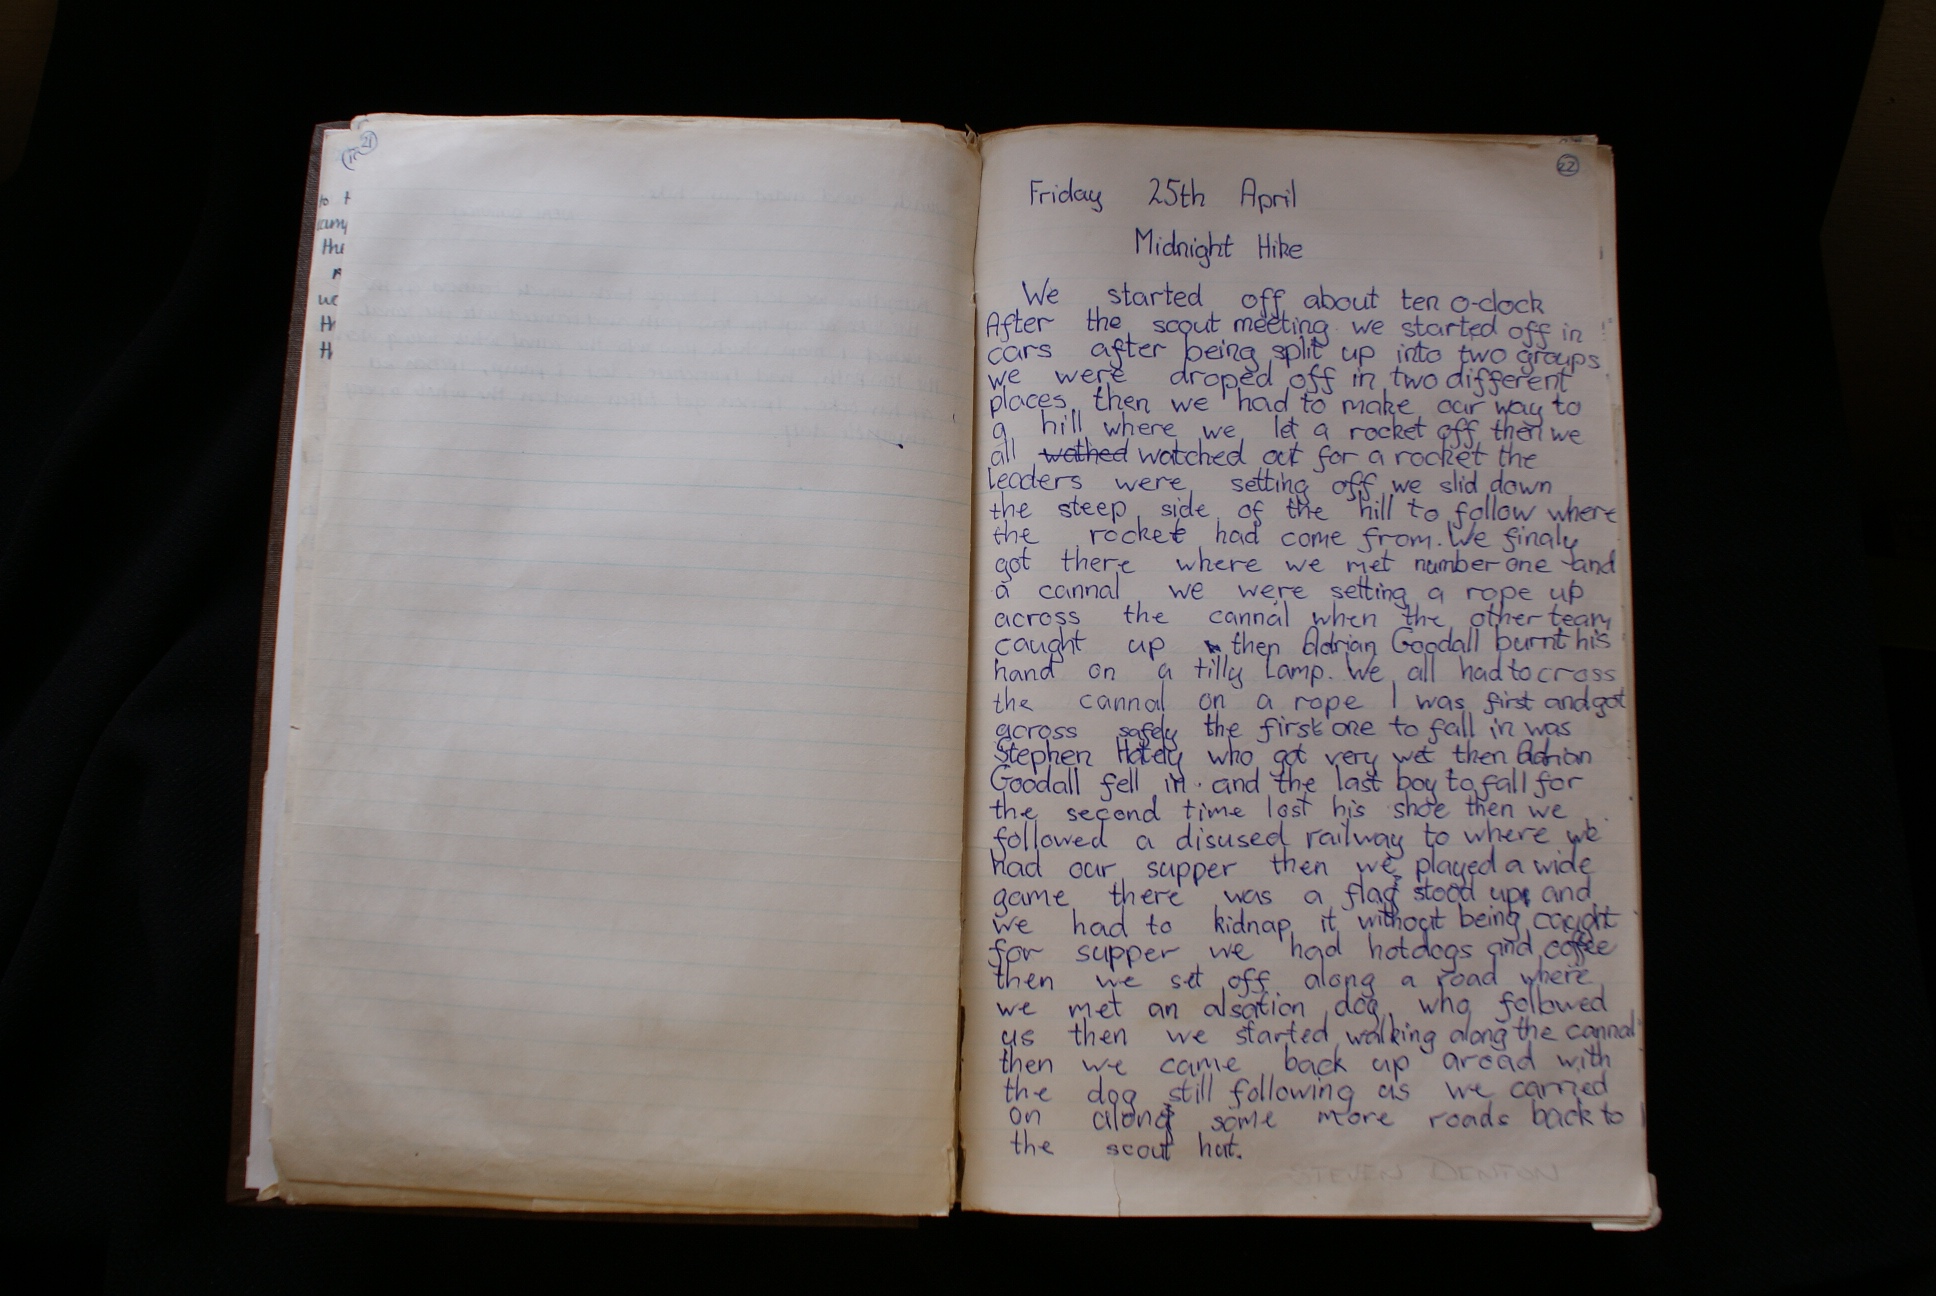 21
22
Friday 25th April
Midnight Hike
We started off about ten o-clock
After the scout meeting we started off in
cars after being split up into two groups
we were droped off in two different
places then we had to make our way to
a hill where we let a rocket off then we
all wathed watched out for a rocket the
leaders were setting off we slid down
the steep side of the hill to follow where
the rocket had come from. We finaly
got there where we met number one and
a cannal we were setting a rope up
across the cannal when the other team
caught up then Adrian Goodall burnt his
hand on a tilly lamp. We all had to cross
the cannal on a rope I was first and got
across safely the first one to fall in was
Stephen Hately who got very wet then Adrian
Goodall fell in. and the last boy to fall for
the second time lost his shoe then we
followed a disused railway to where we
had our supper then we played a wide
game there was a flag stood up and
we had to kidnap it without being caught
for supper we had hotdogs and coffee
then we set off along a road where
we met an alsation dog who followed
us then we started walking along the cannal
then we came back up a road with
the dog still following us we carried
on along some more roads back to
the scout hut.
STEVEN DENTON